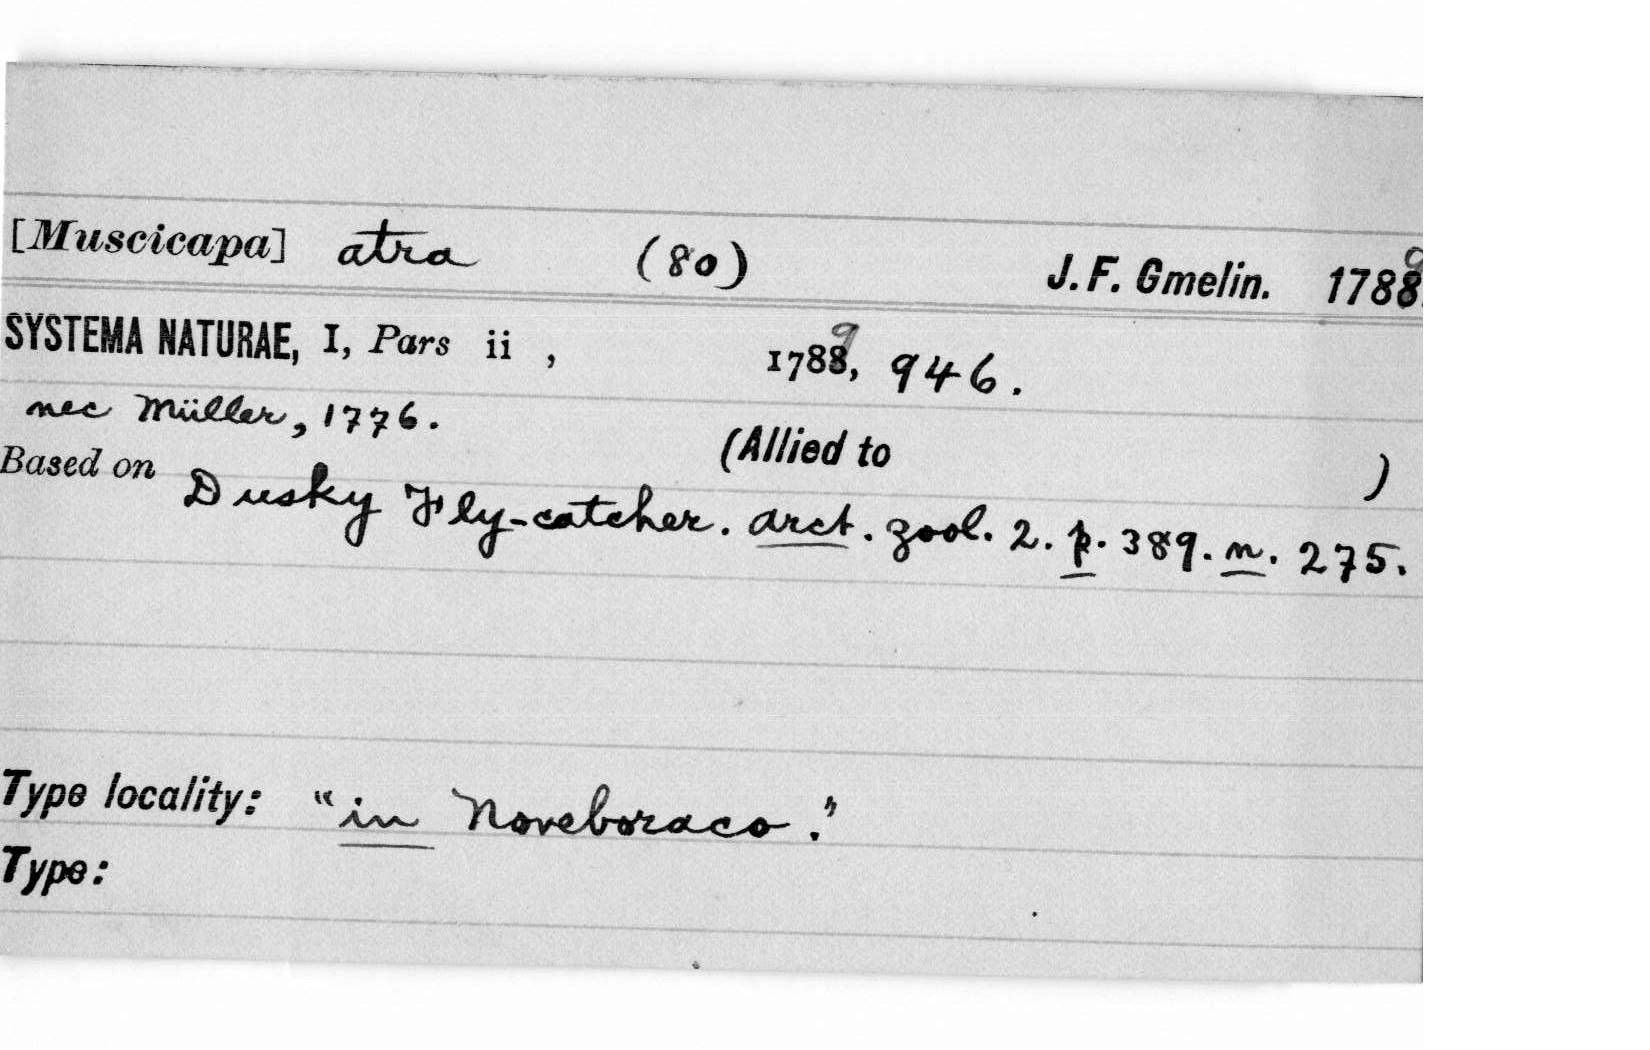 [Muscicapa] atra (80) J. F. Gmelin. 1788 9
SYSTEMA NATURAE, I, Pars ii , 1788 9, 946.
nec Müller, 1776.
(Allied to )
Based on Dusky Fly-catcher. arct. zool. 2. p. 389. n. 275.
Type locality: "in Noveboraco."
Type: